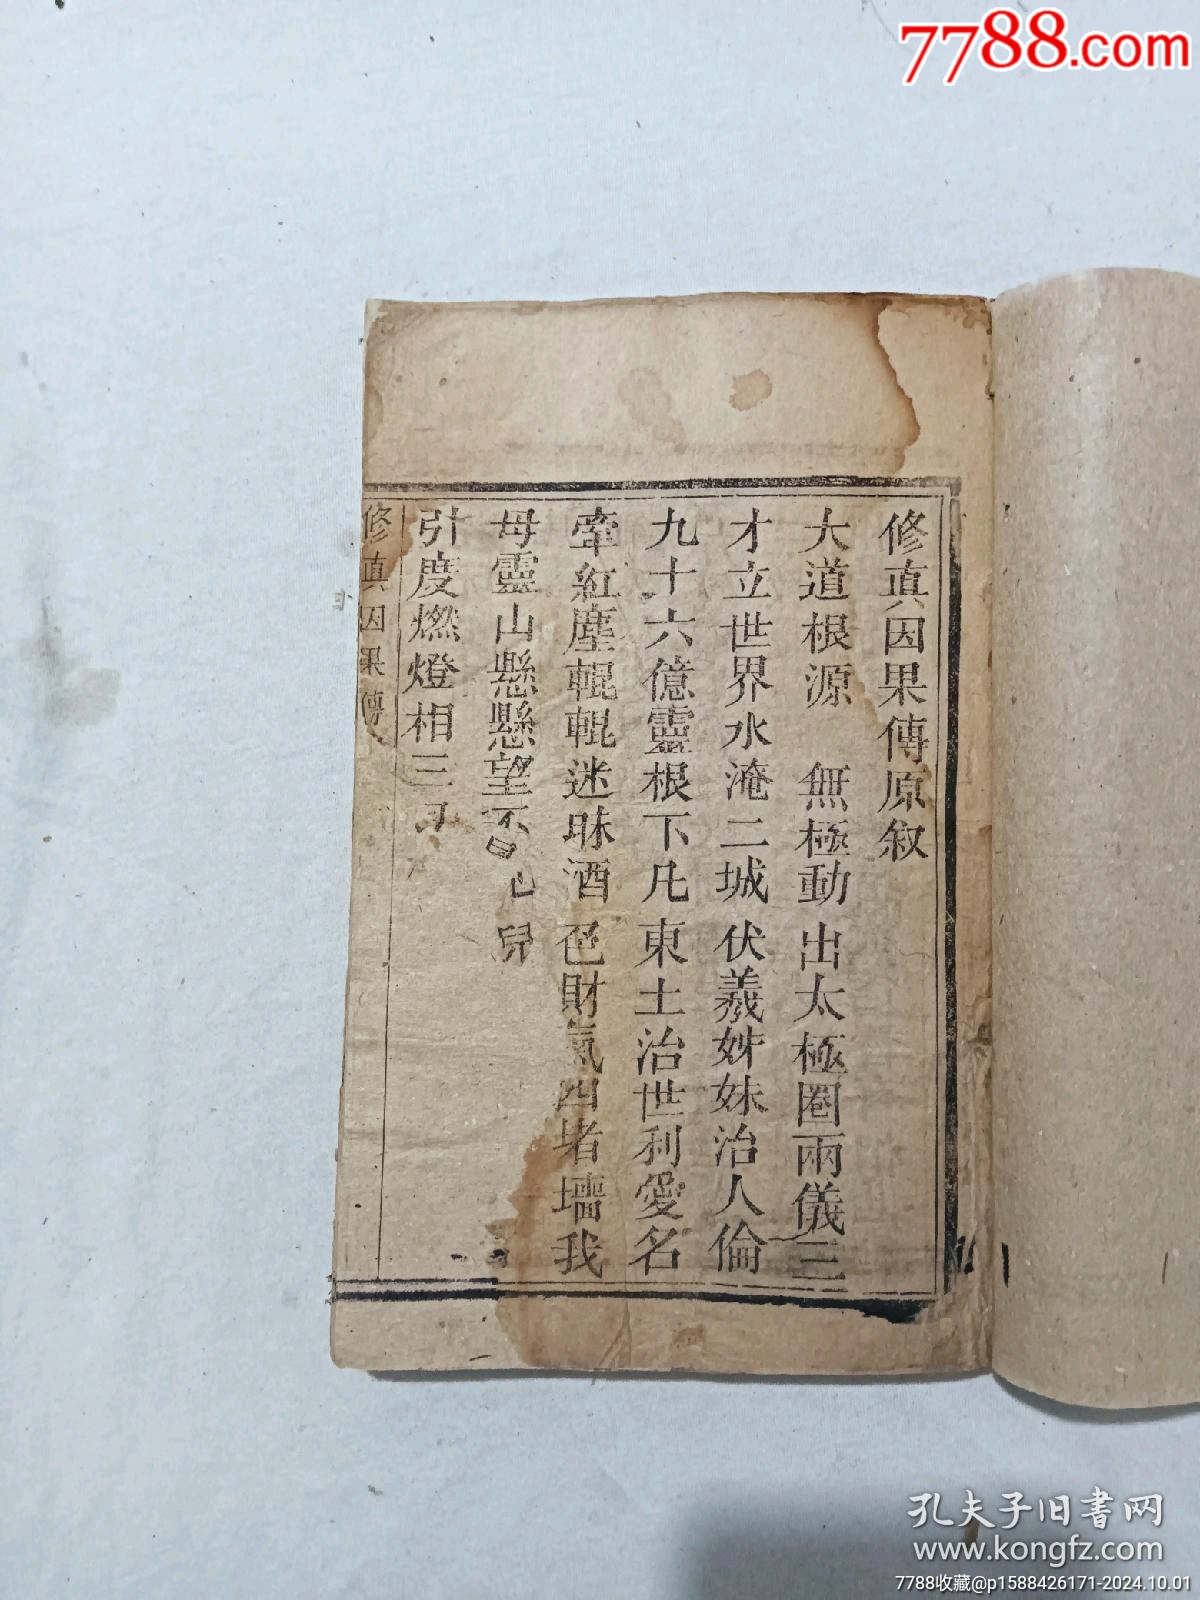 7788.com
修真因果傳原敘
大道根源 無極動出太極圈兩儀三
才立世界水淹二城伏羲姊妹治人倫
九十六億靈根下凡東土治世利愛名
牽紅塵輥輥迷昧酒色財氣四堵墻我
母靈山懸懸望不 兒
引度燃燈相三
修真因果傳
孔夫子旧書网
www.kongfz.com
7788收藏@p1588426171-2024.10.01